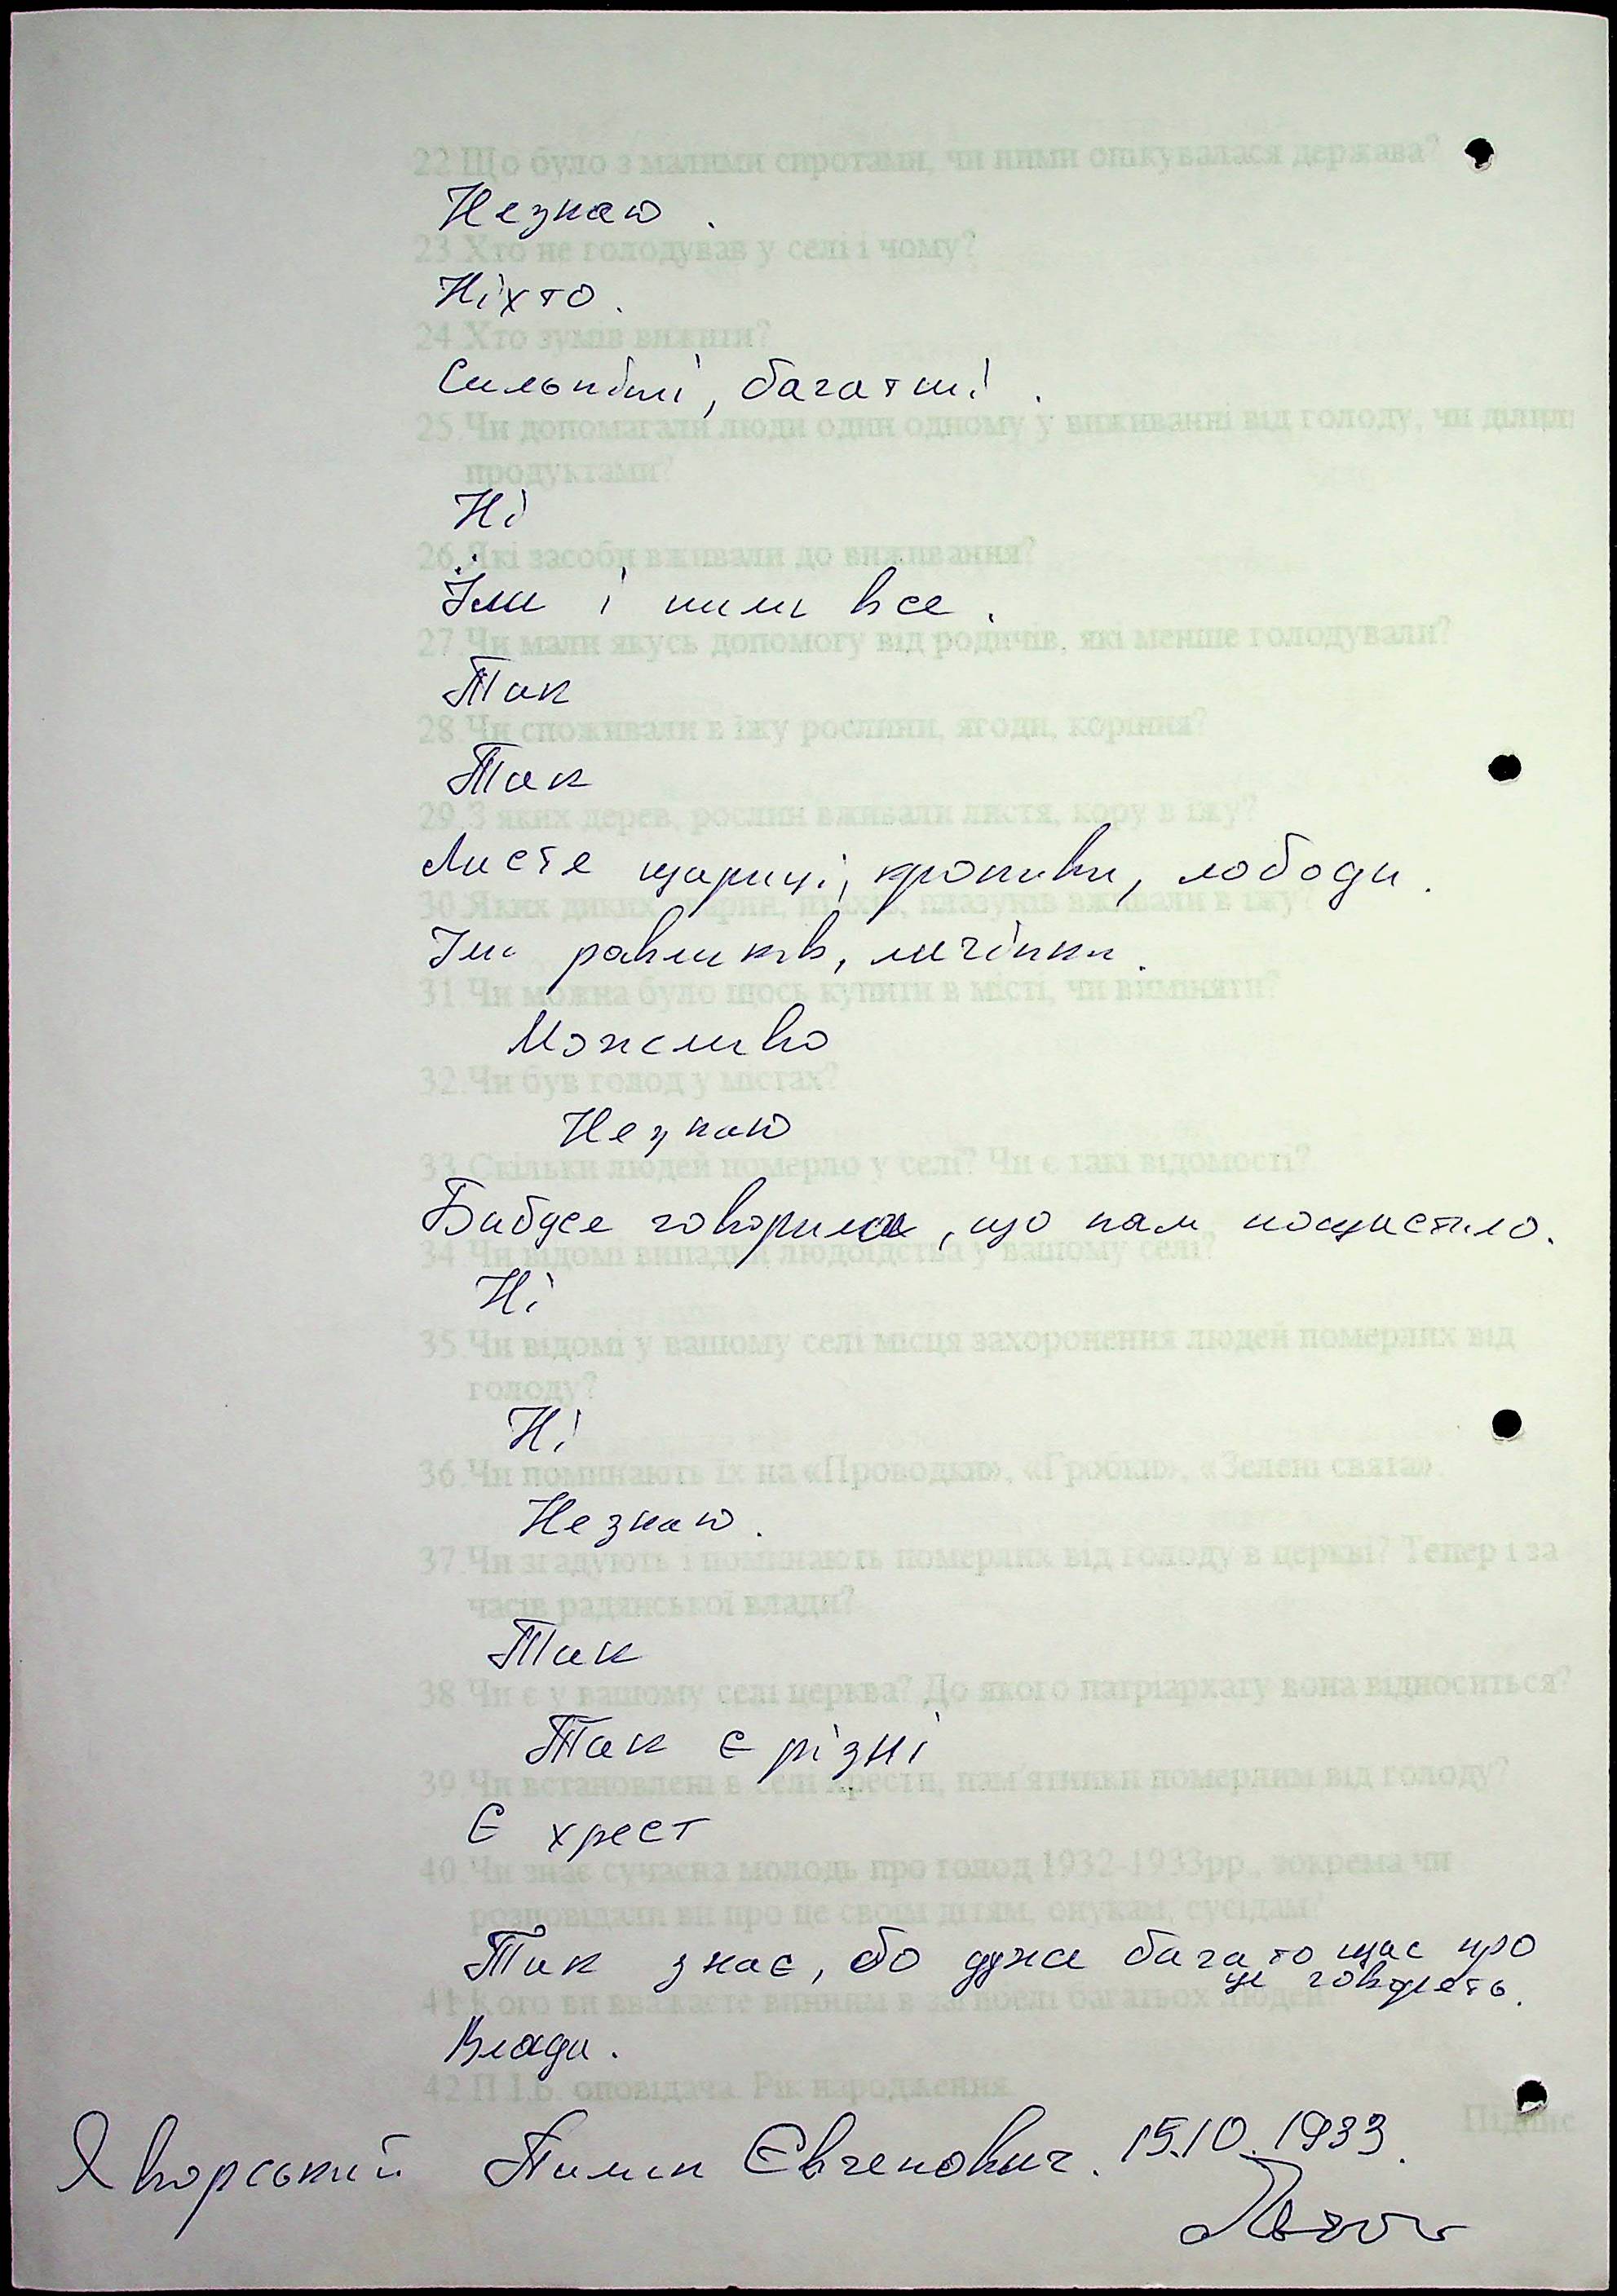 22.Що було з малими сиротами, чи ними опікувалася держава?
Незнаю.
23.Хто не голодував у селі і чому?
Ніхто.
24.Хто зумів вижити?
Сильніші, багатші.
25.Чи допомагали люди один одному у виживанні від голоду, чи ділили
продуктами?
Ні
26.Які засоби вживали до виживання?
Їли і пили все.
27.Чи мали якусь допомогу від родичів, які менше голодували?
Так
28.Чи споживали в їжу рослини, ягоди, коріння?
Так
29.З яких дерев, рослин вживали листя, кору в їжу?
Листя щириці, кропиви, лободи.
30.Яких диких тварин, птахів, плазунів вживали в їжу?
Їли равликів, личінки.
31.Чи можна було щось купити в місті, чи виміняти?
Можливо
32.Чи був голод у містах?
Незнаю
33.Скільки людей померло у селі? Чи є такі відомості?
Бабуся говорила, що нам пощастило.
34.Чи відомі випадки людоїдства у вашому селі?
Ні
35.Чи відомі у вашому селі місця захоронення людей померлих від
голоду?
Ні
36.Чи поминають їх на «Проводки», «Гробки», «Зелені свята».
Незнаю.
37.Чи згадують і поминають померлих від голоду в церкві? Тепер і за
часів радянської влади?
Так
38.Чи є у вашому селі церква? До якого патріархату вона відноситься?
Так є різні
39.Чи встановлені в селі хрести, пам'ятники померлим від голоду?
Є хрест
40.Чи знає сучасна молодь про голод 1932-1933рр., зокрема чи
розповідали ви про це своїм дітям, онукам, сусідам?
Так знає, бо дуже багато щас про
це говорять.
41.Кого ви вважаєте винним в загибелі багатьох людей?
Влади.
42.П.І.Б. оповідача. Рік народження.
Підпис
Яворський Євгенович. 15.10.1933.